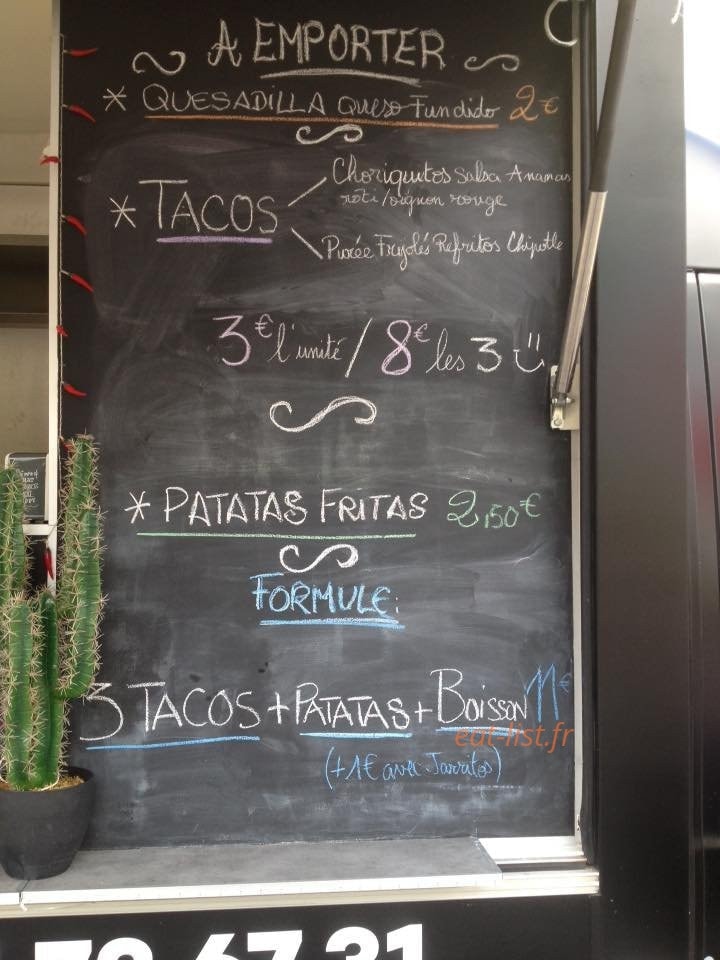 A EMPORTER
* QUESADILLA Queso Fundido 2€
* TACOS
Choriquitos Salsa Ananas
roti/oignon rouge
Purée Frijolés Refritos Chipotle
3€ l'unité / 8€ les 3
* PATATAS FRITAS 2,50€
FORMULE:
3 TACOS + PATATAS + Boisson 11€
eat-list.fr
(+1€ avec Jarritos)
72 67 31